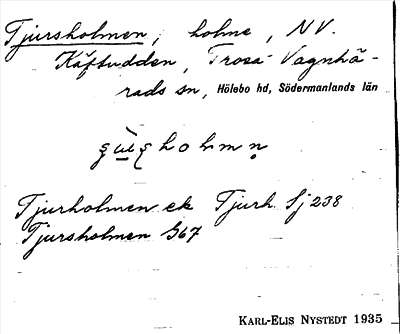 Tjursholmen, holme, NV.
Käftudden, Trosa-Vagnhä-
rads sn, Hölebo hd, Södermanlands län
Tjurholmen ek Tjurh. Sj 238
Tjursholmen G67
KARL-ELIS NYSTEDT 1935